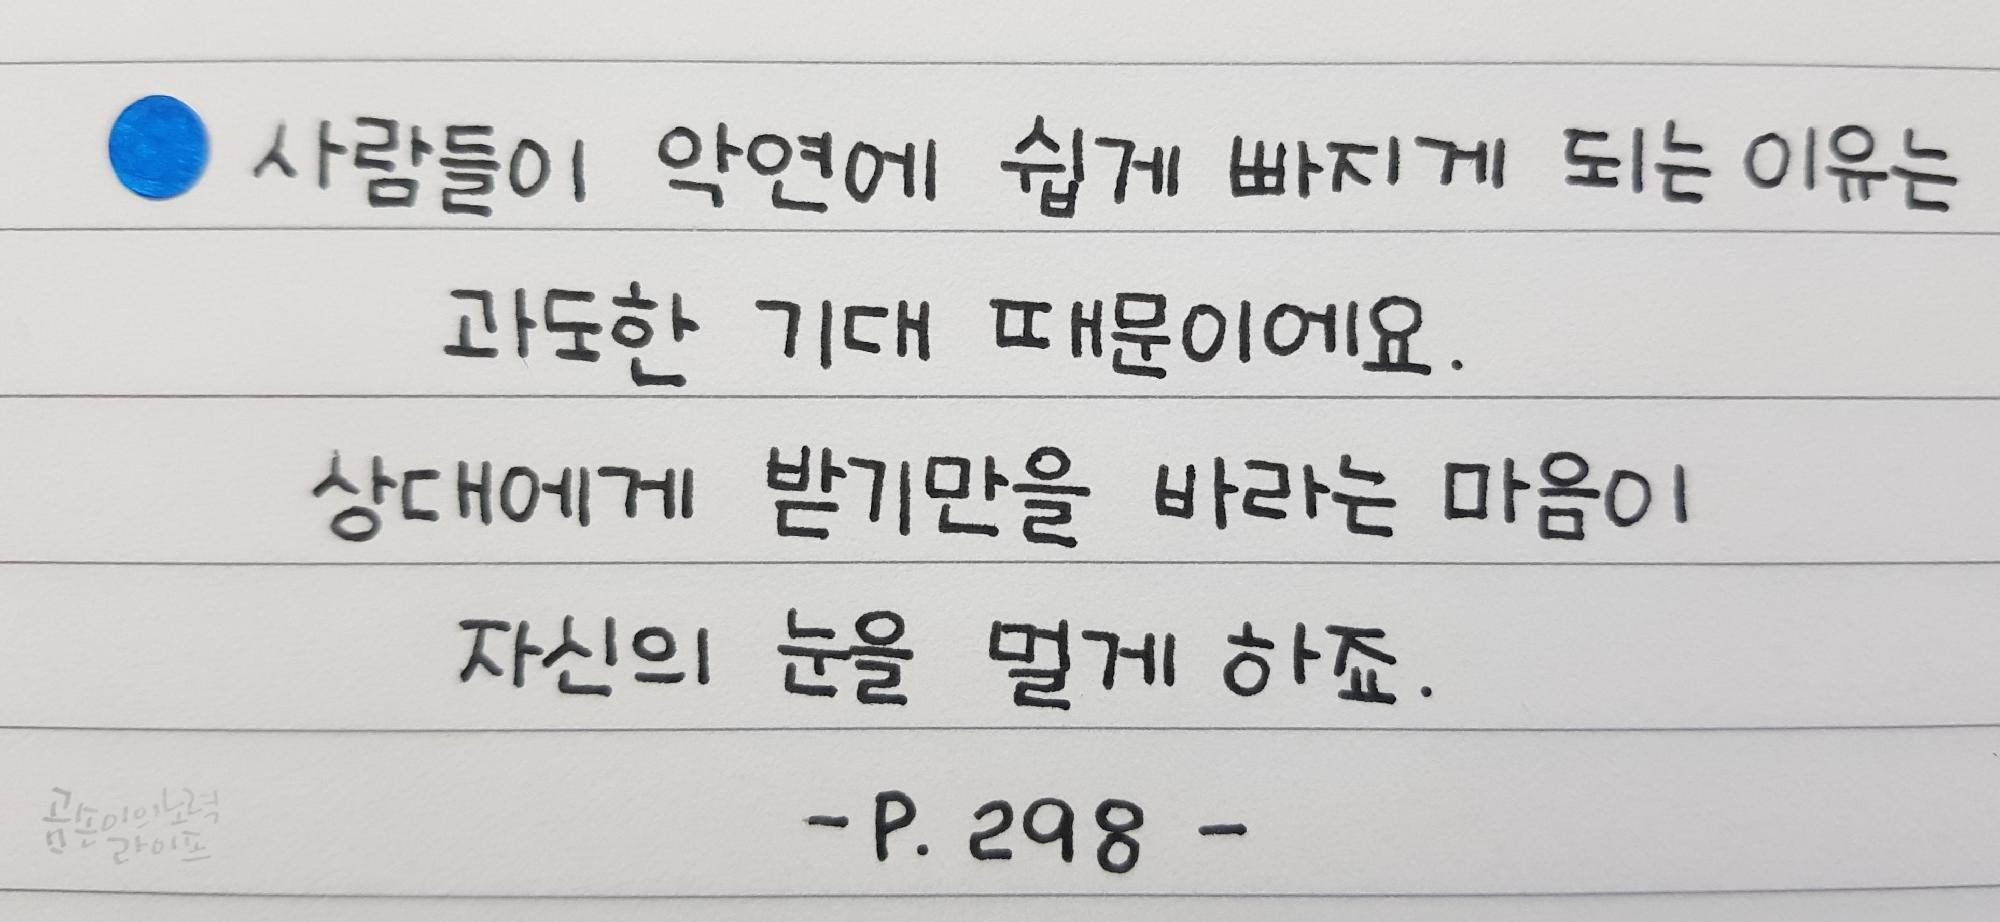 사람들이 악연에 쉽게 빠지게 되는 이유는
과도한 기대 때문이에요.
상대에게 받기만을 바라는 마음이
자신의 눈을 멀게 하죠.
- P. 298 -
곰손이의 노력
라이프